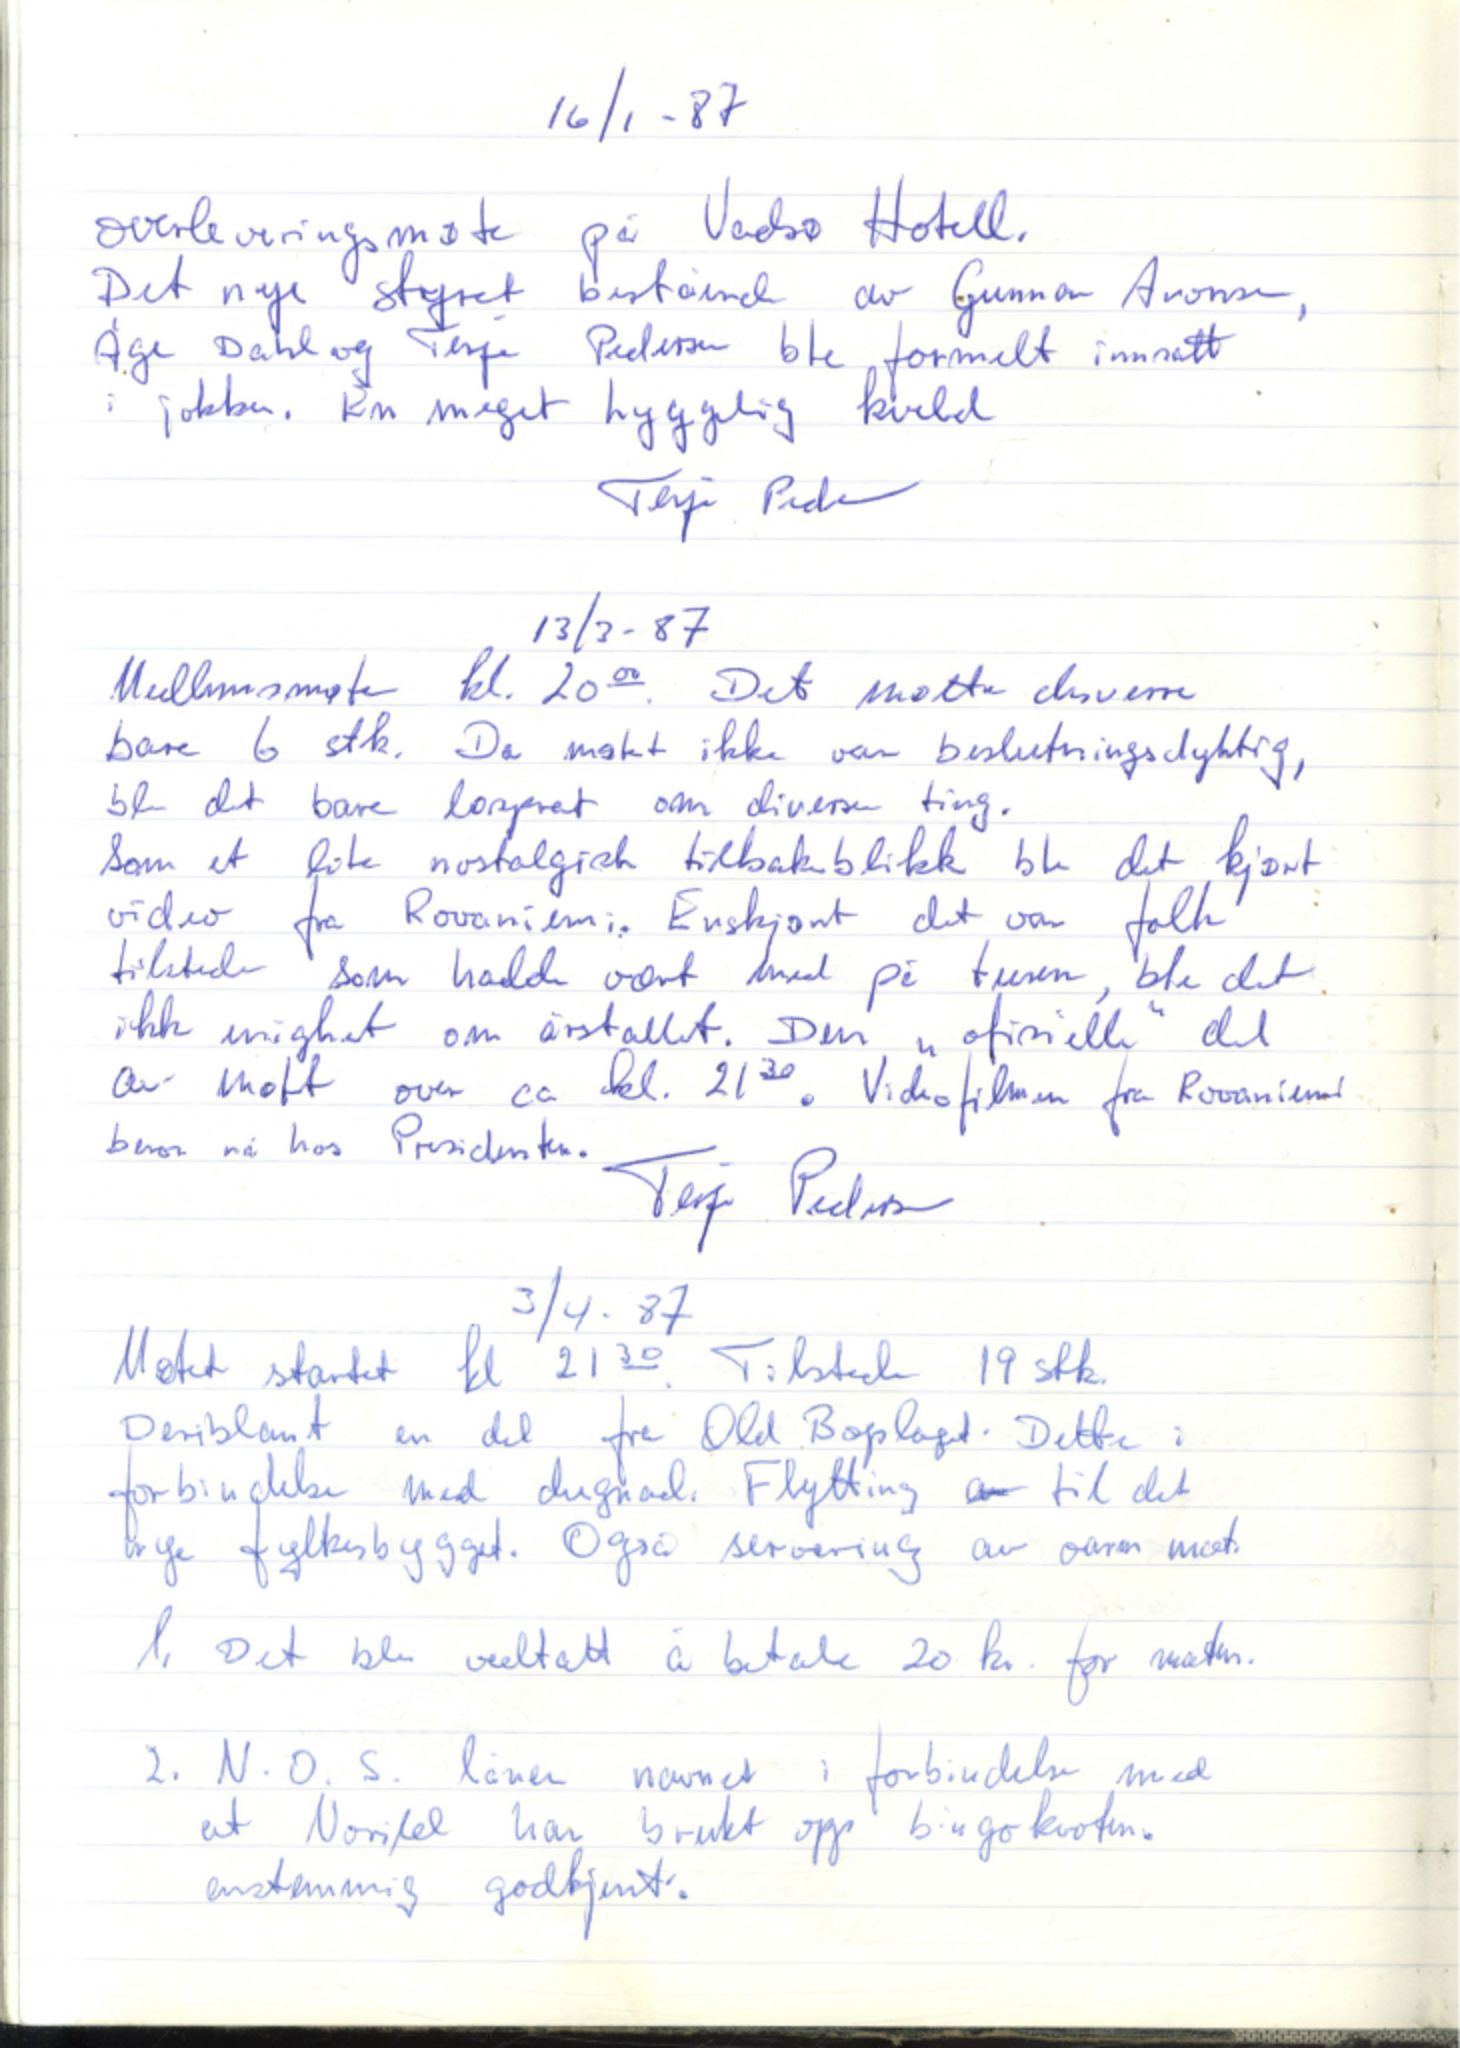 16/1 - 87
overleveringsmøte på Vadsø Hotell.
Det nye styret bestående av Gunnar Aronsen,
Åge Dahl og Terje Pedersen ble formelt innsatt
i jobben. En meget hyggelig kveld
Terje Peder
13/3 - 87
Medlemsmøte kl. 20⁰⁰. Det møtte desverre
bare 6 stk. Da møtet ikke var beslutningsdyktig,
ble det bare løsprat om diverse ting.
Som et lite nostalgisk tilbakeblikk ble det kjørt
video fra Rovaniemi. Enskjønt det var folk
tilstede som hadde vært med på turen, ble det
ikke enighet om årstallet. Den „ofisielle" del
av møtet over ca kl. 21³⁰. Videofilmen fra Rovaniemi
beror nå hos Presidenten.
Terje Pedersen
3/4 - 87
Møtet startet kl 21³⁰. Tilstede 19 stk.
Deriblant en del fra Old Boyslaget. Dette i
forbindelse med dugnad. Flytting til det
nye fylkesbygget. Også servering av varm mat.
1. Det ble vedtatt å betale 20 kr. for maten.
2. N.O.S. låner navnet i forbindelse med
at Norild har brukt opp bingokvoten.
enstemmig godkjent.